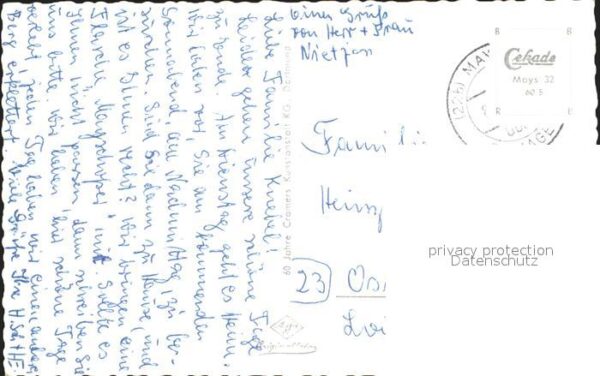 Einen Gruß
von Herr + Frau
Nietjen
Liebe Familie Knebel!
Leider gehen unsere schöne Tage
zu Ende. Am Dienstag geht es Heim.
Wir haben vor, Sie am kommenden
Sonnabend am Nachmittag, zu be-
suchen. Sind Sie dann zu Hause, und
ist es Ihnen recht? Wir bringen eine
mit. Sollte es
Ihnen nicht passen, dann schreiben Sie
uns bitte. Wir haben hier schöne Tage
verlebt, jeden Tag haben wir einen anderen
Berg erklettert. Viele Grüße Ihre
60 Jahre Cramers Kunstanstalt KG. Dortmund
Agfa
Cekade
Mays 32
60 S
B
B
R
R
(22b) MAY
Famili
Heinz
23 Os
privacy protection
Datenschutz